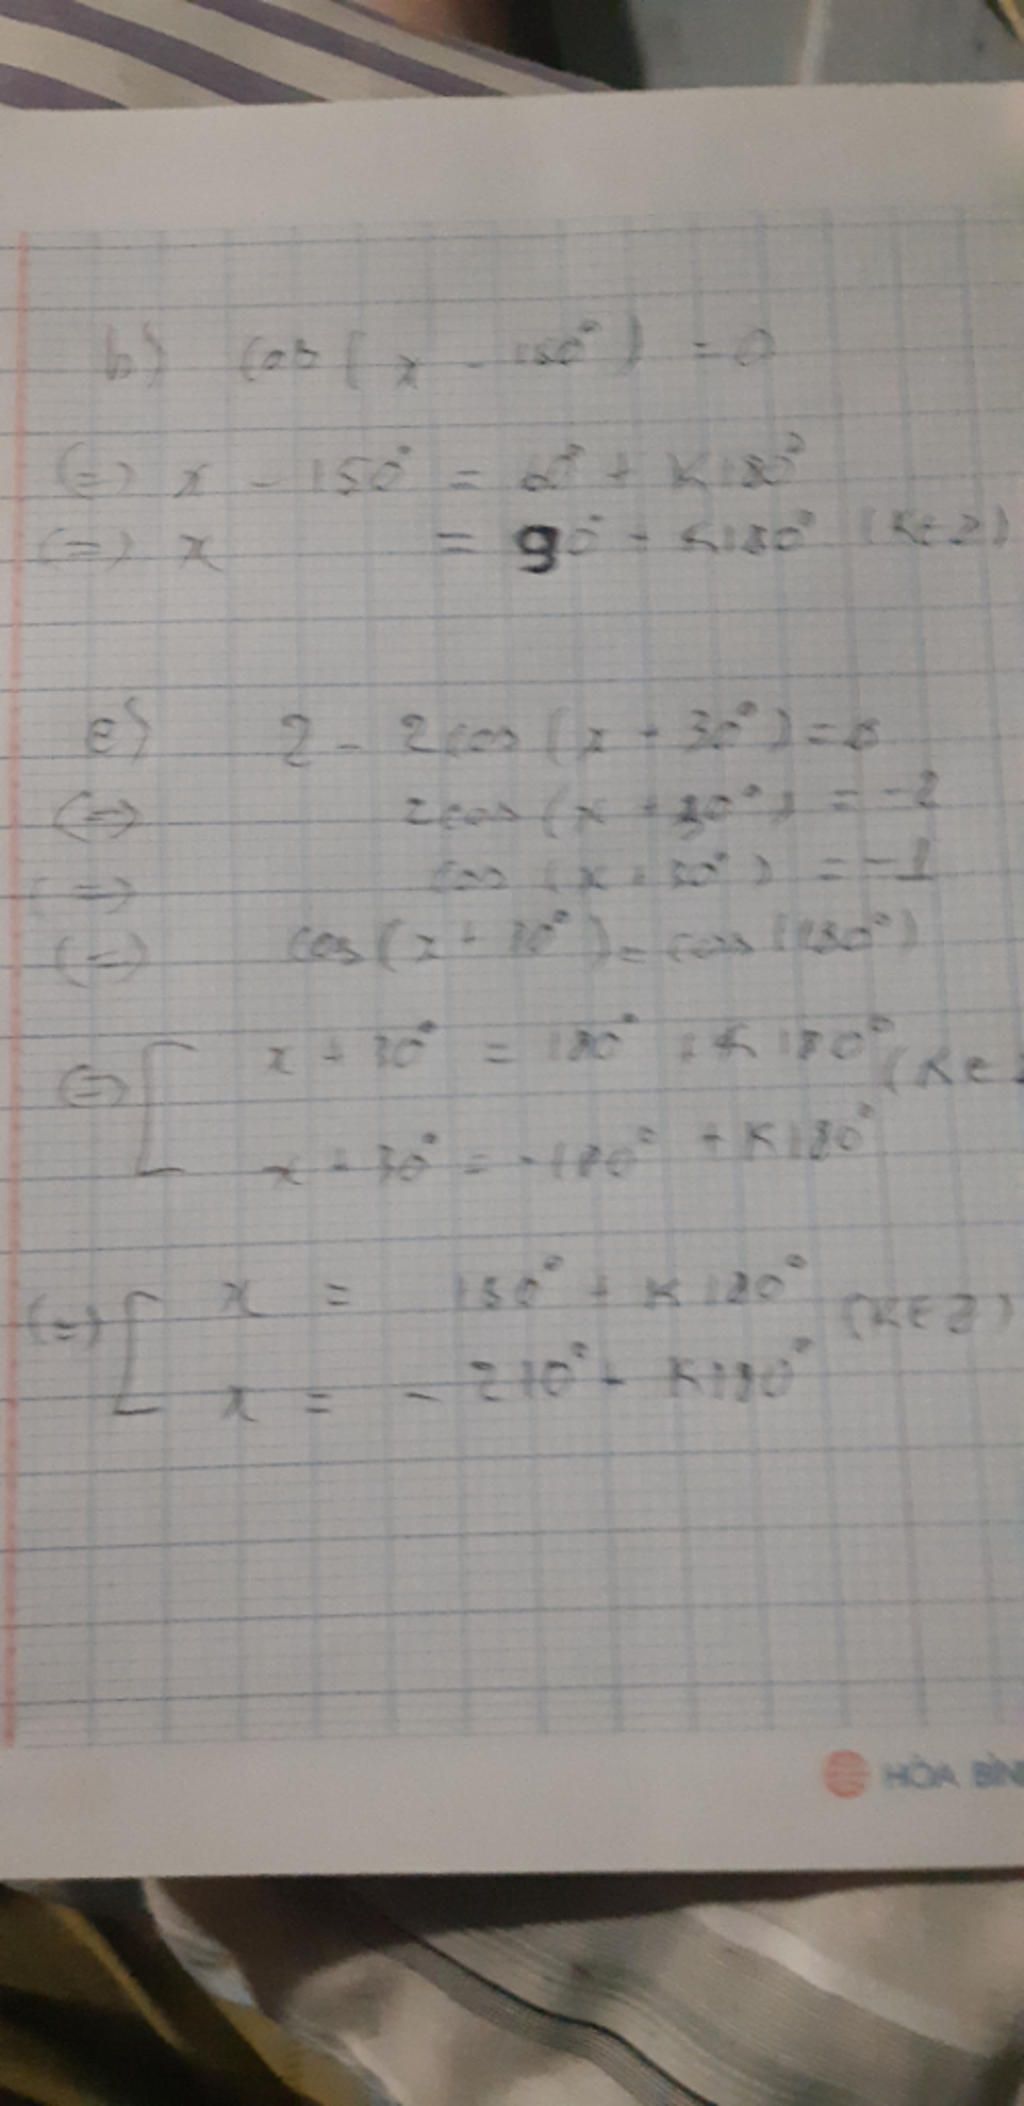 b) cos ( x - 150° ) = 0
(=) x - 150° = 60° + K180°
(=) x = 90° + K180° (K∈Z)
e) 2 - 2cos ( x + 30° ) = 0
(=) 2cos ( x + 30° ) = -2
(=) cos ( x + 30° ) = -1
(=) cos ( x + 30° ) = cos (180°)
(=) [ x + 30° = 180° + K180° (K∈
x + 30° = -180° + K180°
(=) [ x = 150° + K180° (K∈Z)
x = - 210° + K180°
HÒA BÌN